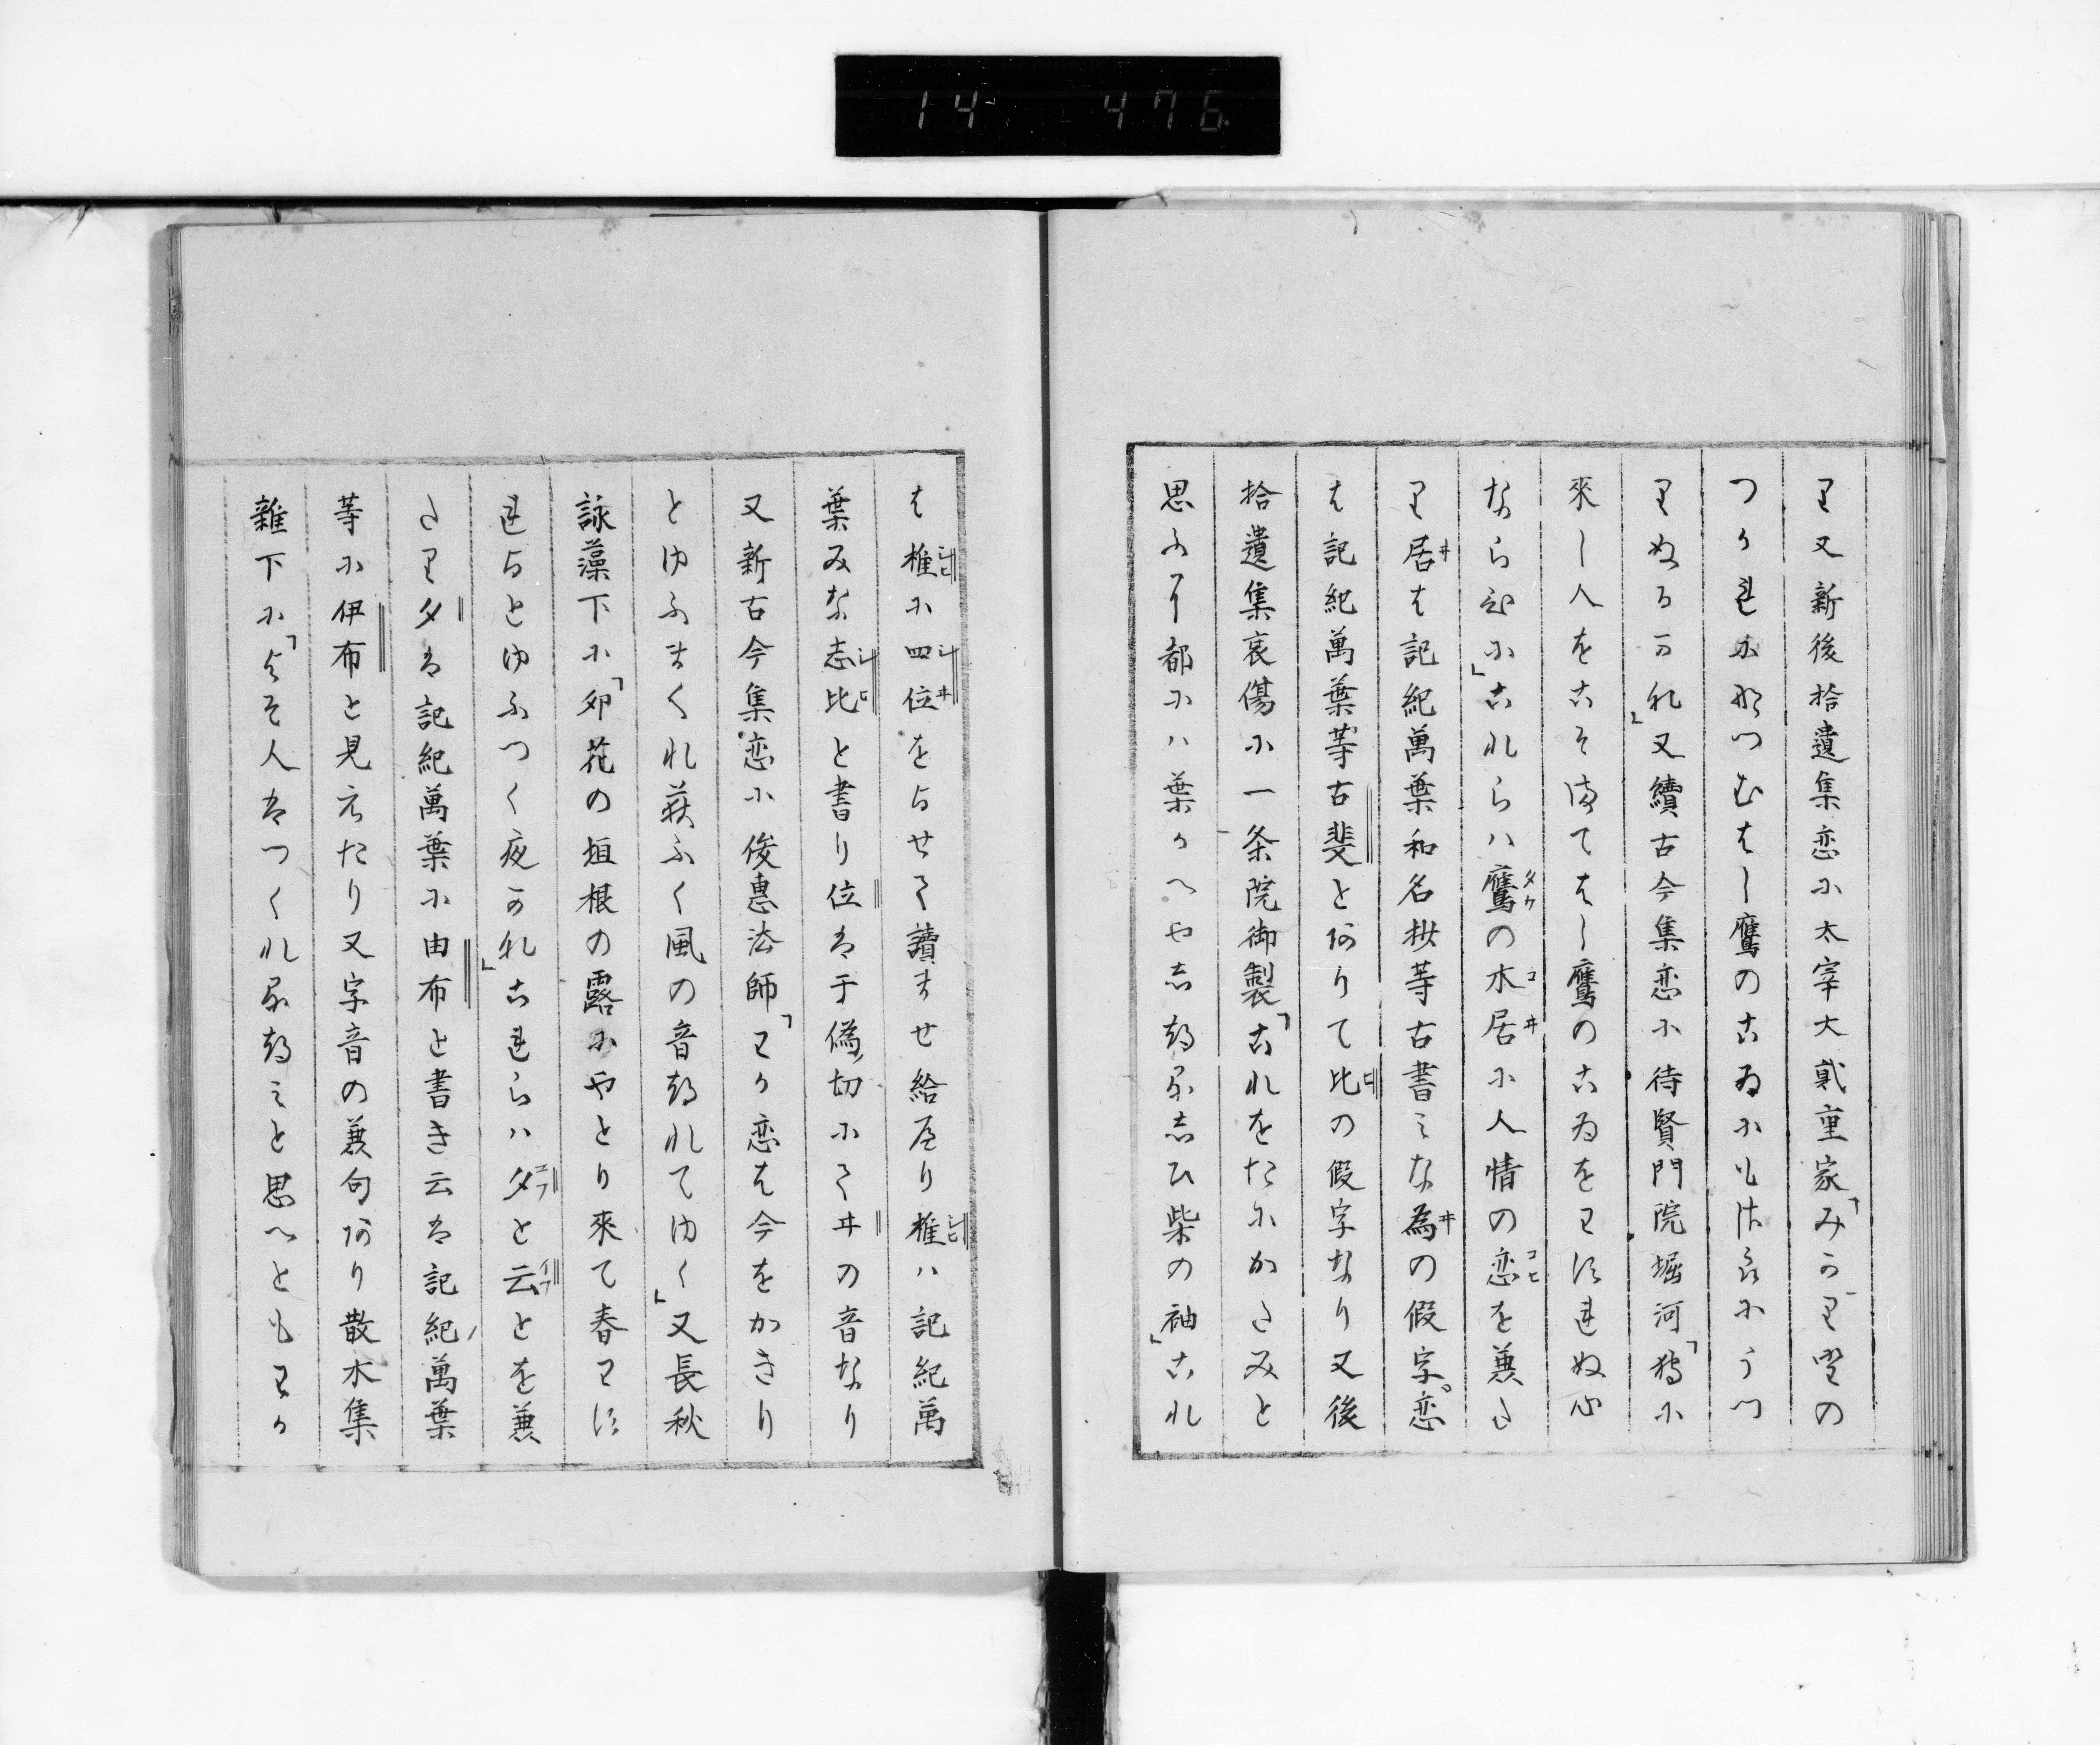 14 476
り又新後拾遺集恋に太宰大貳重家「みかり野の
つかれになつむはし鷹のこゐにもはらにうつ
りぬるかな」又續古今集恋に待賢門院堀河「狩に
來し人をこそ待てはし鷹のこゐをわすれぬ心
ならひに」これらハ鷹の木居に人情の恋を兼た
り居は記紀萬葉和名抄等古書みな為の假字恋
は記紀萬葉等古斐とありて比の假字なり又後
拾遺集哀傷に一条院御製「これをたにかたみと
思ふに都にハ葉かへやしつるしひ柴の袖」これ
は椎に四位をよせて讀ませ給へり椎ハ記紀萬
葉みな志比と書り位は于偽切にてヰの音なり
又新古今集恋に俊惠法師「わか恋は今をかきり
とゆふまくれ荻ふく風の音つれてゆく」又長秋
詠藻下に「卯花の垣根の露にやとり來て春わす
れよとゆふつく夜かな」これらハ夕と云とを兼
たり夕は記紀萬葉に由布と書き云は記紀萬葉
等に伊布と見えたり又字音の兼句あり散木集
雜下に「よそ人はつくなるつみと思へともわか